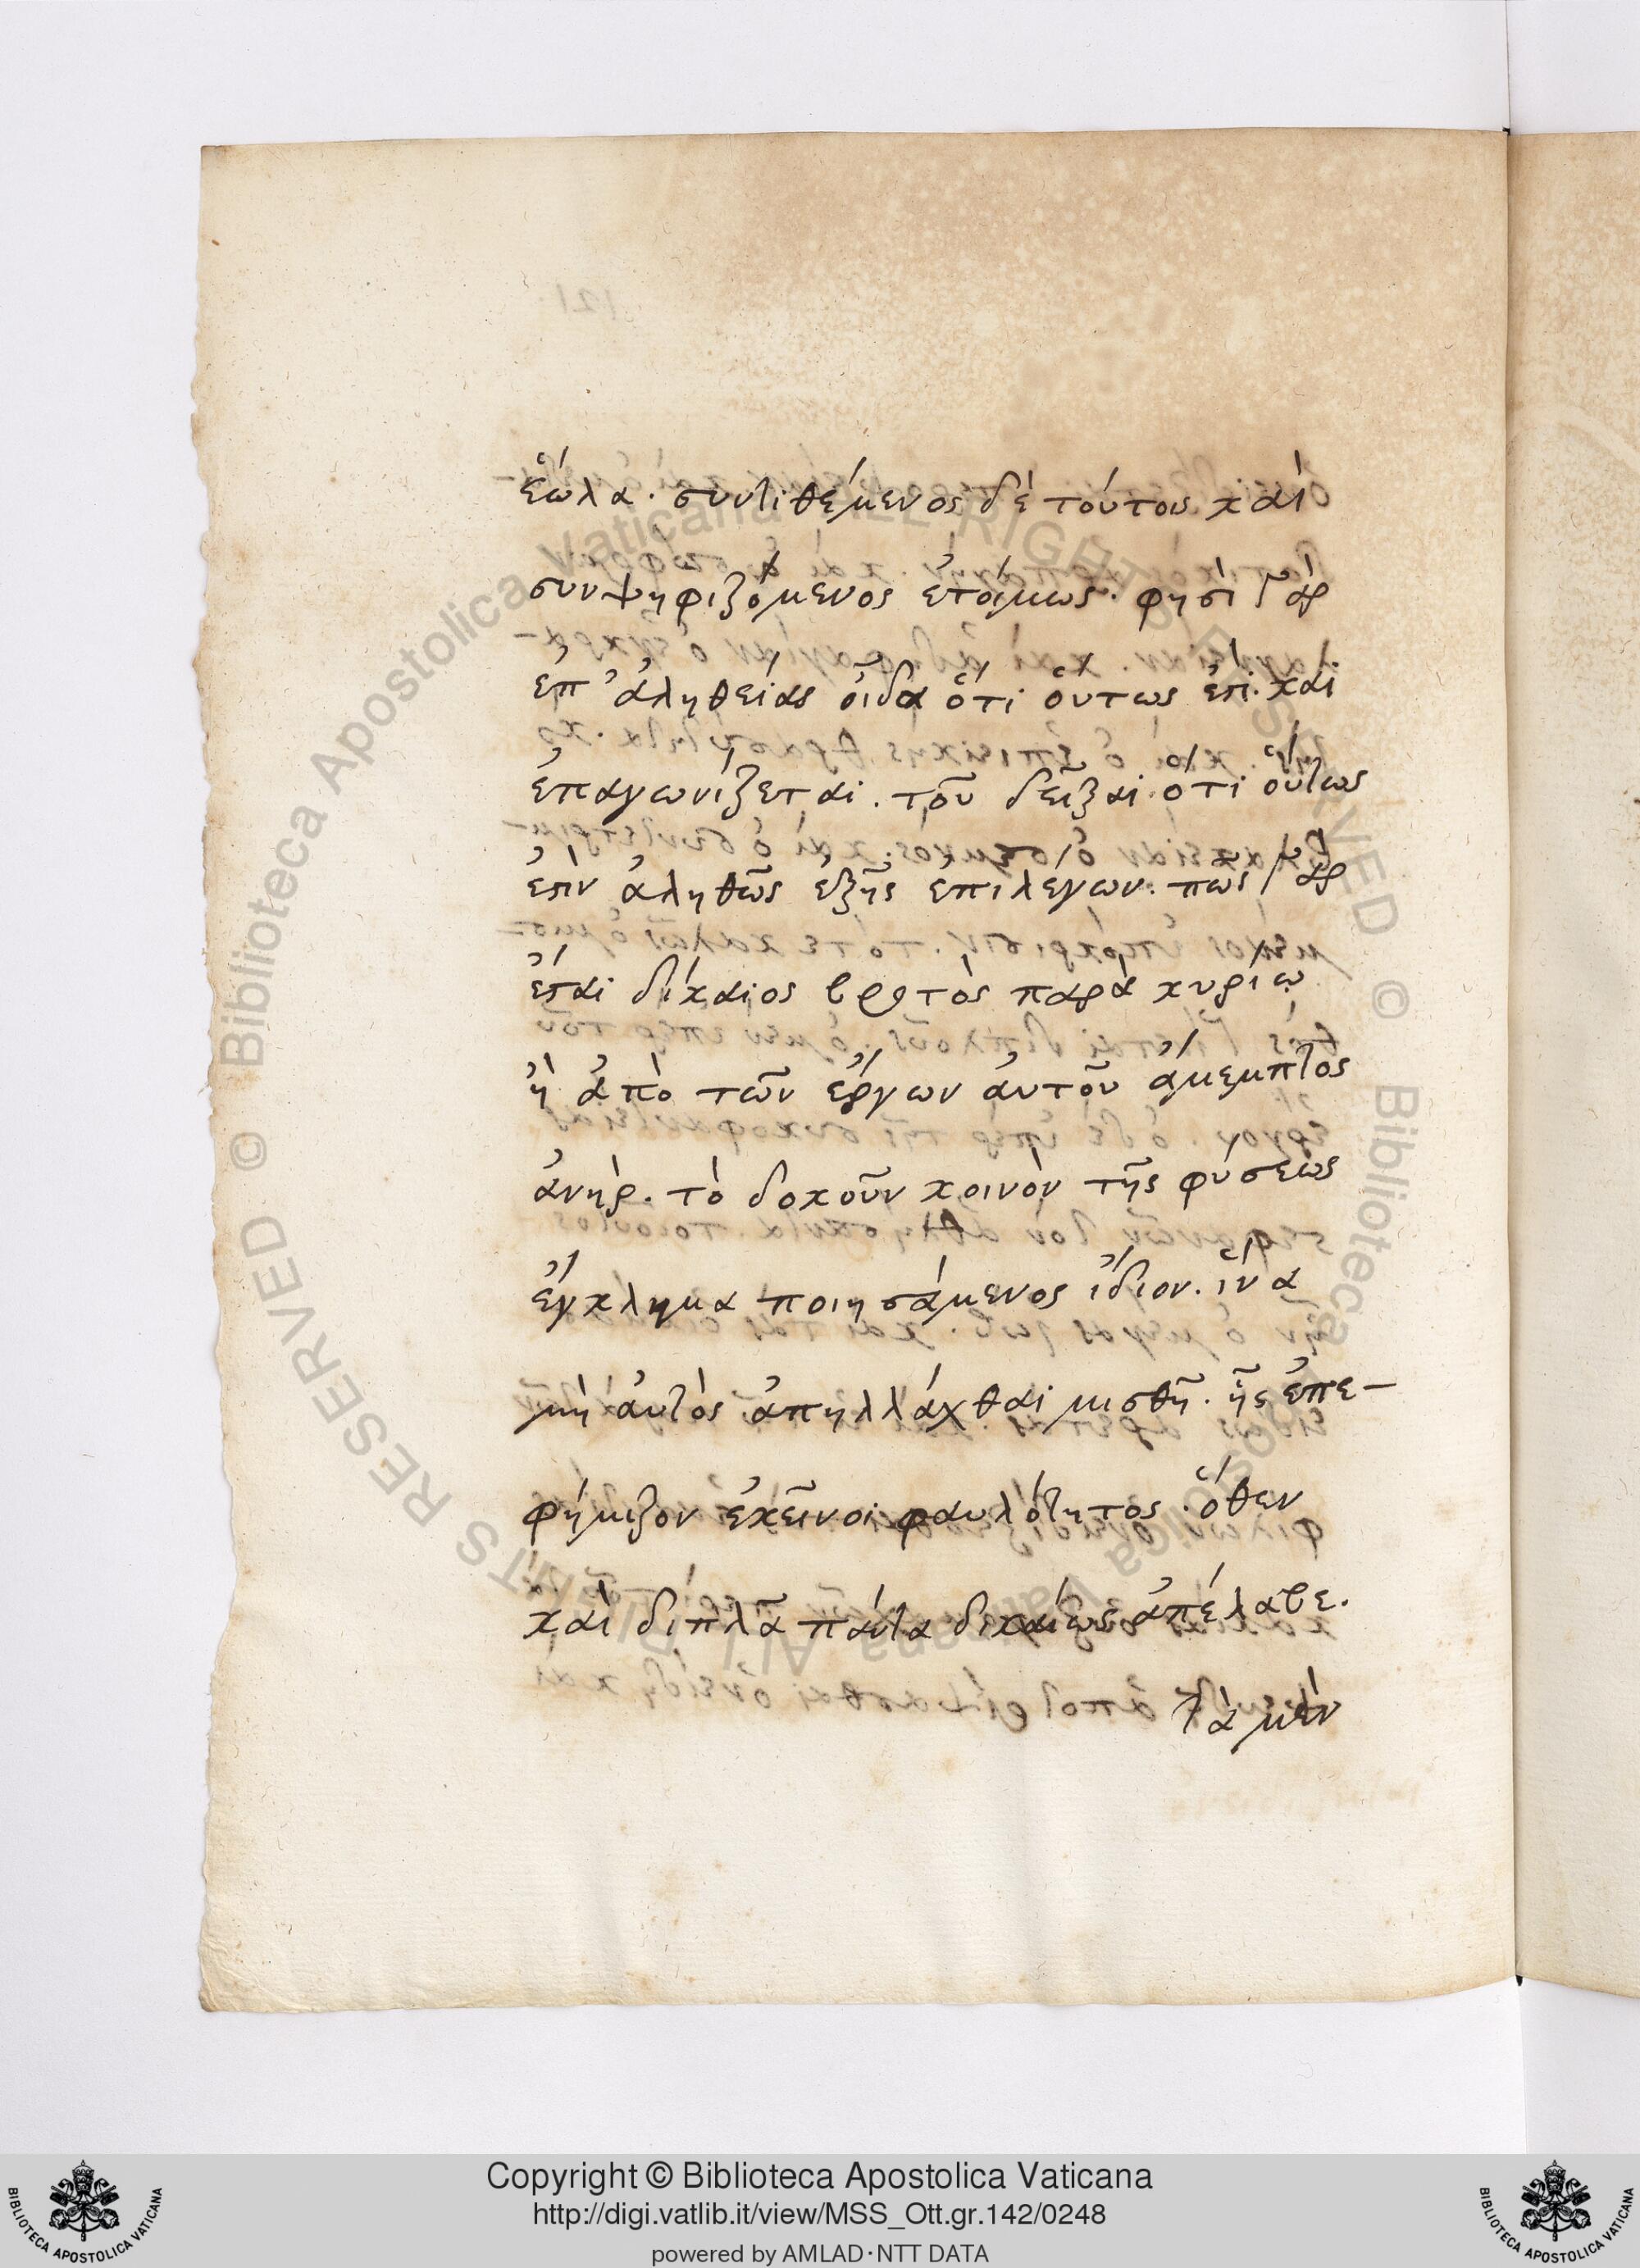 ἕωλα. συντιθέμενος δὲ τούτοις καὶ
συνψηφιζόμενος ἑτοίμως. φησὶ γὰρ
ἐπ' ἀληθείας οἶδα ὅτι οὕτως ἐστὶ. καὶ
ἐπαγωνίζεται. τοῦ δεῖξαι ὅτι οὕτως
ἐστὶν ἀληθῶς ἑξῆς ἐπιλέγων. πῶς γὰρ
ἔσται δίκαιος βροτὸς παρὰ κυρίῳ
ἢ ἀπὸ τῶν ἔργων αὐτοῦ ἄμεμπτος
ἀνὴρ. τὸ δοκοῦν κοινὸν τῆς φύσεως
ἔγκλημα ποιησάμενος ἴδιον. ἵνα
μὴ αὐτὸς ἀπηλλάχθαι μισθῇ. ἧς ἐπε-
φήμιζον ἐκεῖνοι φαυλότητος. ὅθεν
καὶ διπλᾶ πάντα δικαίως ἀπέλαβε.
Τὰ μὲν
Copyright © Biblioteca Apostolica Vaticana
http://digi.vatlib.it/view/MSS_Ott.gr.142/0248
powered by AMLAD·NTT DATA
BIBLIOTECA APOSTOLICA VATICANA
BIBLIOTECA APOSTOLICA VATICANA